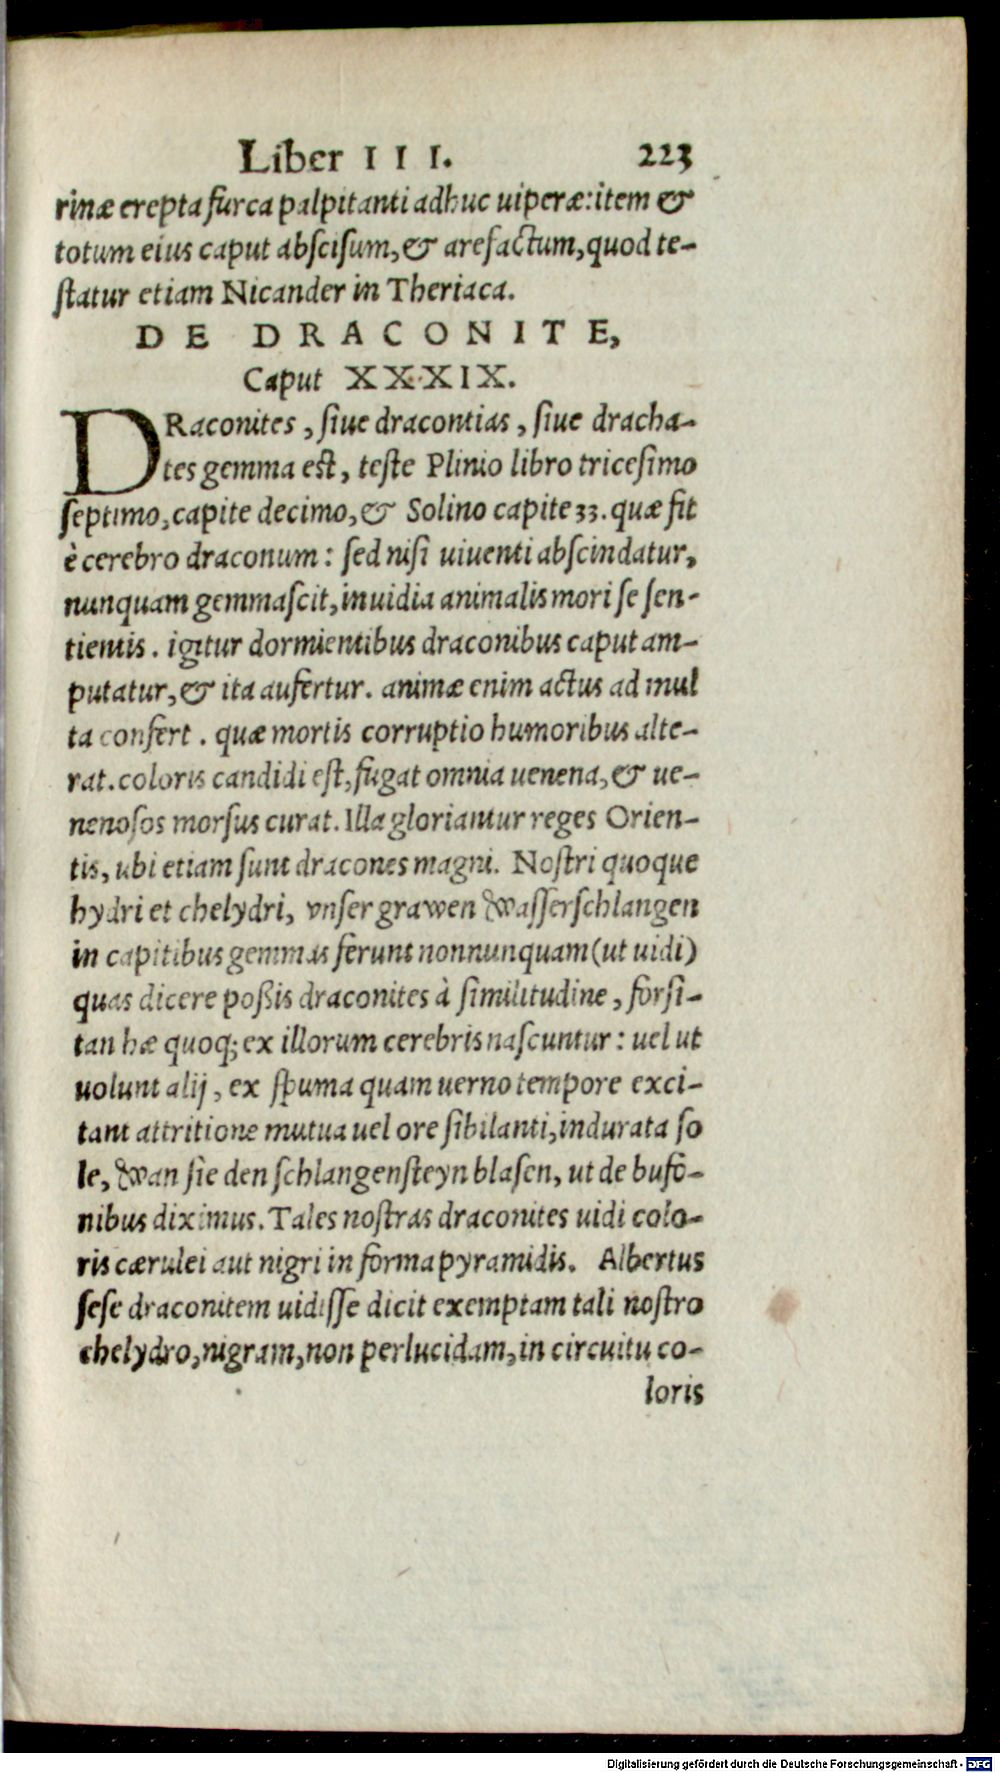 Liber III. 223
rinæ erepta furca palpitanti adhuc uiperæ: item &
totum eius caput abſciſum, & arefactum, quod te-
ſtatur etiam Nicander in Theriaca.
DE DRACONITE,
Caput XXXIX.
DRaconites, ſiue dracontias, ſiue dracha-
tes gemma est, teſte Plinio libro triceſimo
ſeptimo, capite decimo, & Solino capite 33. quæ fit
è cerebro draconum: ſed niſi uiuenti abſcindatur,
nunquam gemmaſcit, inuidia animalis mori ſe ſen-
tientis. igitur dormientibus draconibus caput am-
putatur, & ita aufertur. animæ enim actus ad mul
ta confert. quæ mortis corruptio humoribus alte-
rat. coloris candidi eſt, fugat omnia uenena, & ue-
nenoſos morſus curat. Illa gloriantur reges Orien-
tis, ubi etiam ſunt dracones magni. Noſtri quoque
hydri et chelydri, vnſer grawen waſſerſchlangen
in capitibus gemmas ferunt nonnunquam (ut uidi)
quas dicere poßis draconites à ſimilitudine, forſi-
tan hæ quoq; ex illorum cerebris naſcuntur: uel ut
uolunt alij, ex ſpuma quam uerno tempore exci-
tant attritione mutua uel ore ſibilanti, indurata ſo
le, wan ſie den ſchlangenſteyn blaſen, ut de bufo-
nibus diximus. Tales noſtras draconites uidi colo-
ris cærulei aut nigri in forma pyramidis. Albertus
ſeſe draconitem uidiſſe dicit exemptam tali noſtro
chelydro, nigram, non perlucidam, in circuitu co-
loris
Digitalisierung gefördert durch die Deutsche Forschungsgemeinschaft - DFG